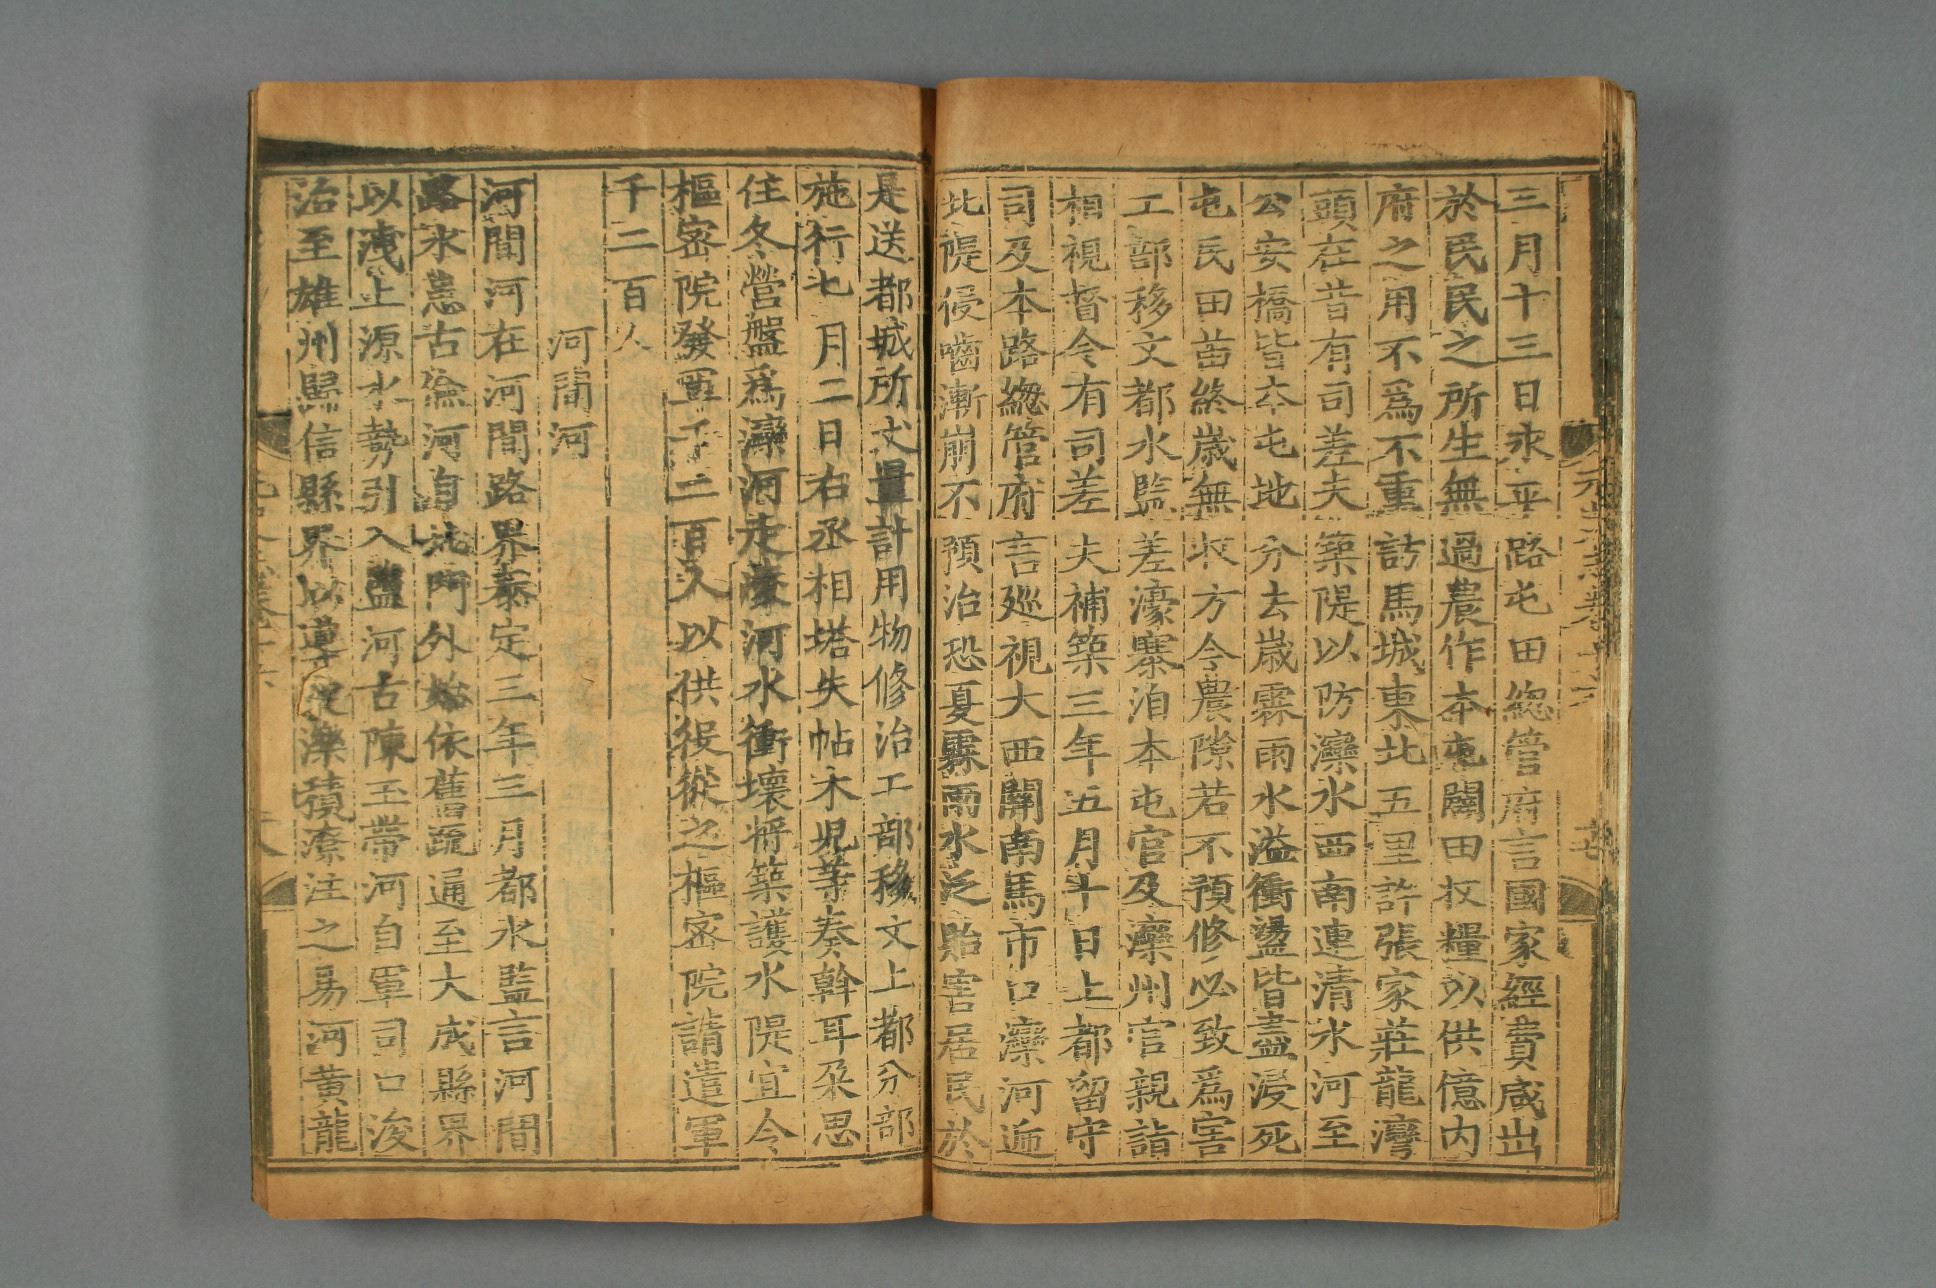 三月十三日永平路屯田総管府言國家經費咸出
於民民之所生無過農作本屯闢田収糧以供億內
府之用不爲不重訪馬城東北五里許張家莊龍灣
頭在昔有司差夫築隄以防灤水西南連清水河至
公安橋皆本屯地分去歲霖雨水溢衝盪皆盡浸死
屯民田苗終歲無収方今農隙若不預修必致爲害
工部移文都水監差濠寨洎本屯官及灤州官親詣
相視督令有司差夫補築三年五月十日上都留守
司及本路総管府言廵視大西關南馬市口灤河逓
北隄侵嚙漸崩不預治恐夏霖雨水泛貽害居民於
是送都城所丈量計用物修治工部移文上都分部
施行七月二日右丞相塔失帖木児等奏斡耳朶思
住冬營盤爲灤河走淩河水衝壞將築護水隄宜令
樞宻院發軍千二百人以供役從之樞宻院請遣軍
千二百人
河間河
河間河在河間路界泰定三年三月都水監言河間
路水患古儉河自北門外始依舊疏通至大成縣界
以洩上源水勢引入鹽河古陳玉帶河自軍司口浚
治至雄州歸信縣界以導淀濼積潦注之易河黄龍